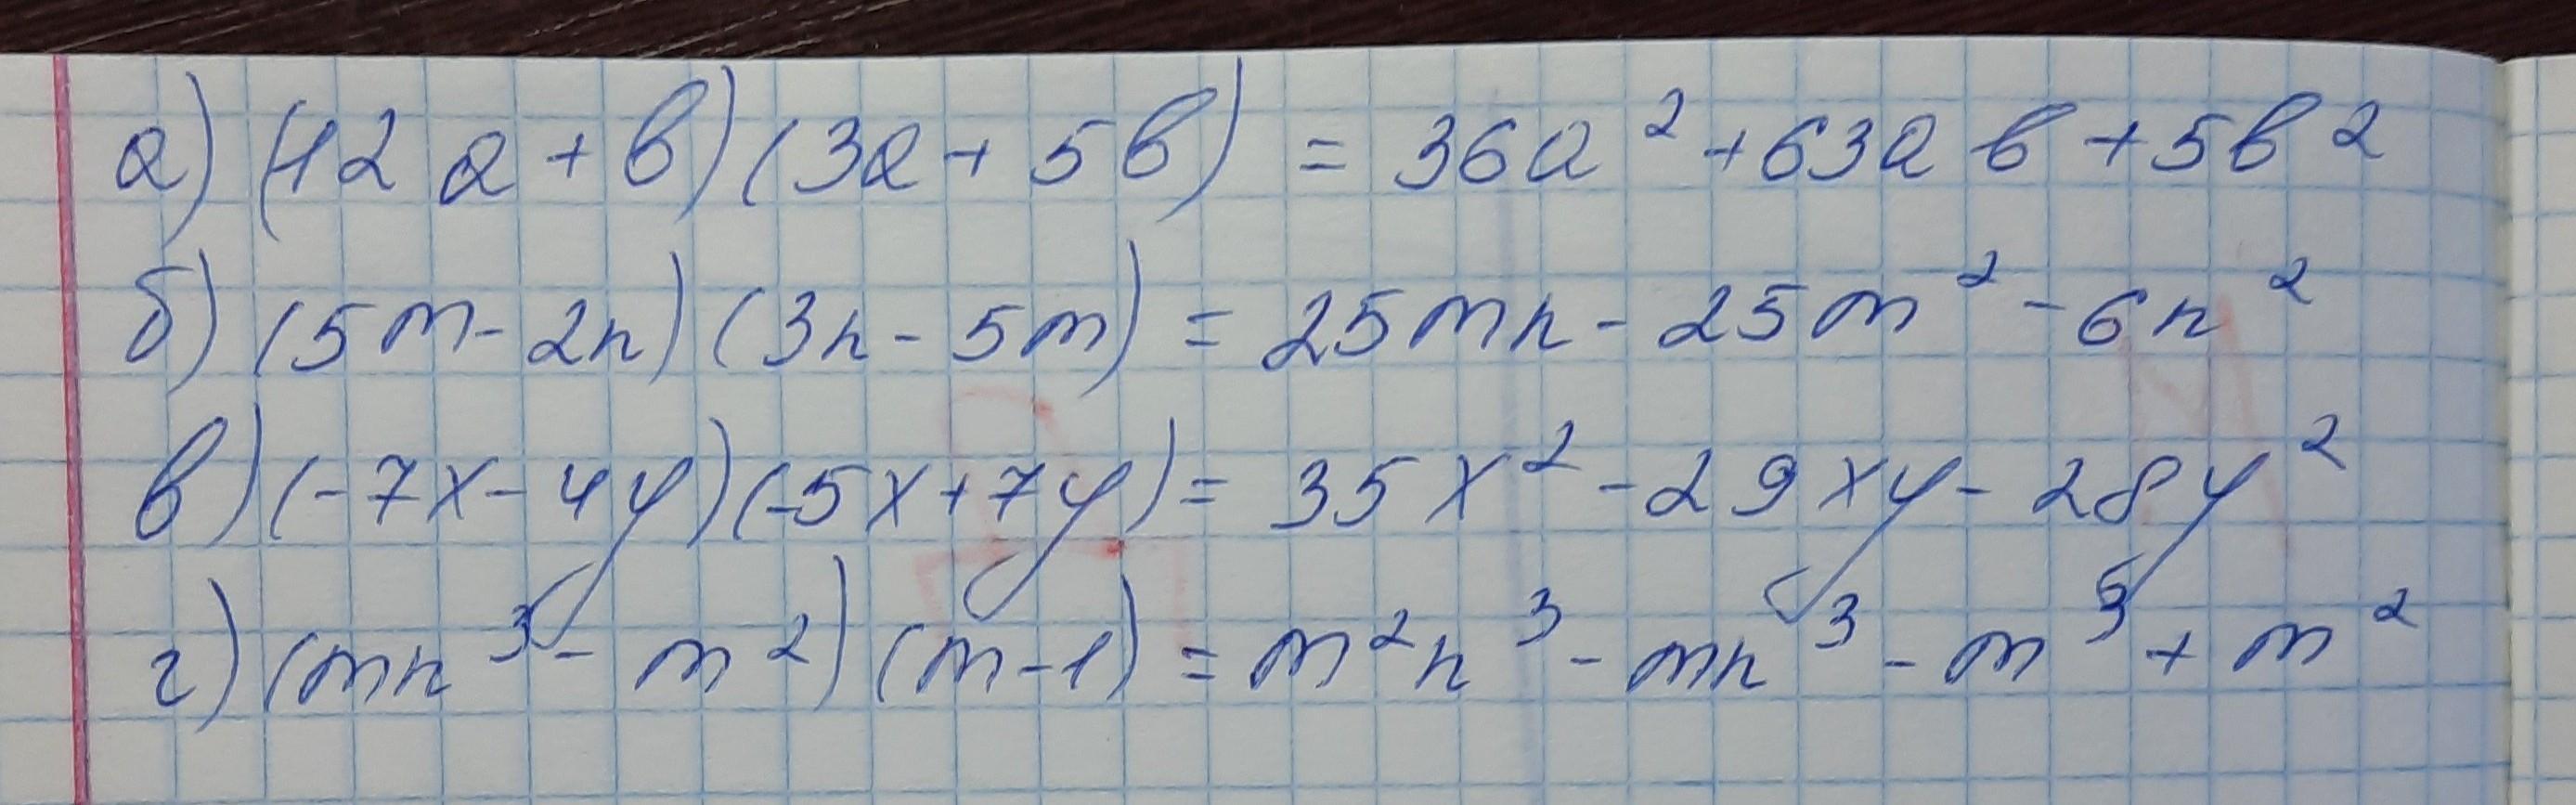 а) (12a + b)(3a + 5b) = 36a² + 63ab + 5b²
б) (5m - 2n)(3n - 5m) = 25mn - 25m² - 6n²
в) (-7x - 4y)(-5x + 7y) = 35x² - 29xy - 28y²
г) (mn³ - m²)(m - 1) = m²n³ - mn³ - m³ + m²